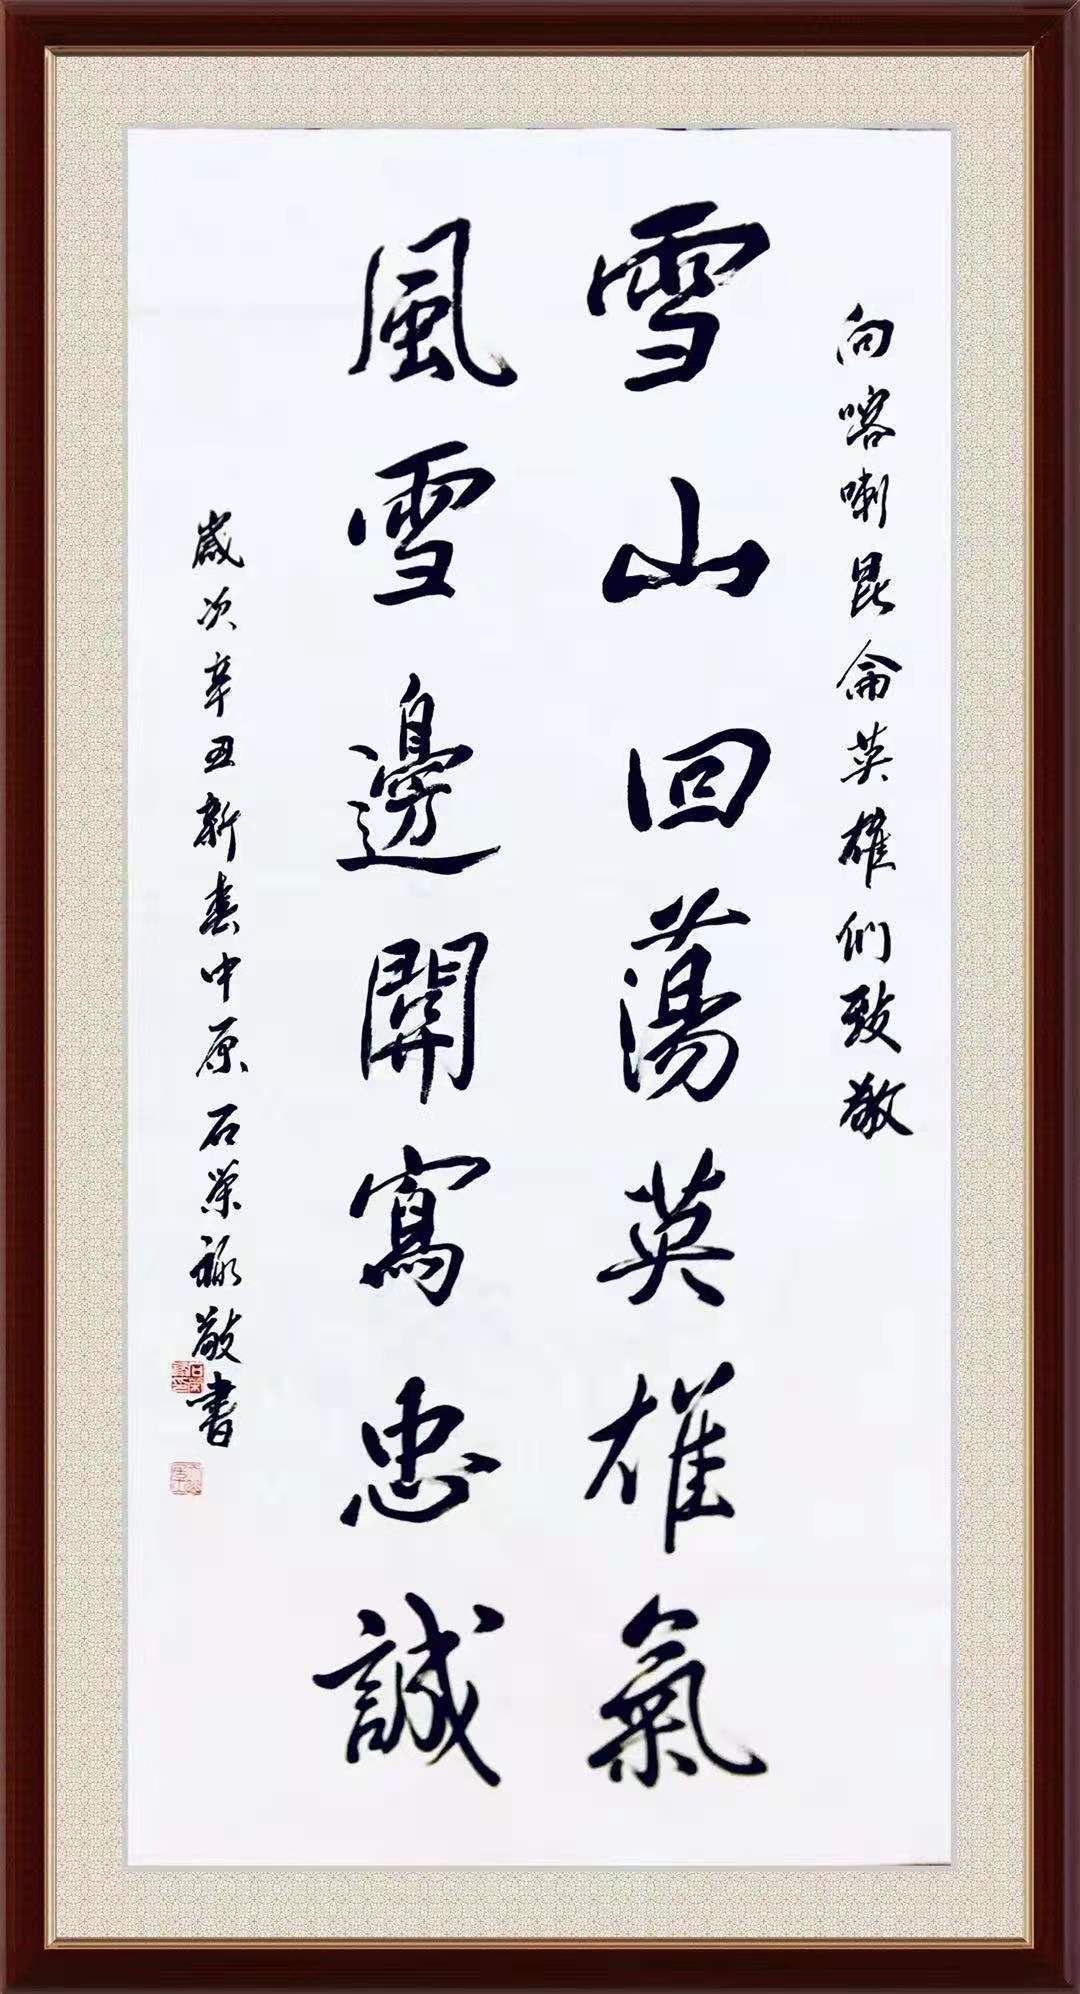 向喀喇昆侖英雄们致敬
雪山回蕩英雄氣
風雪邊開寫忠誠
歲次辛丑新春中原石榮敬書